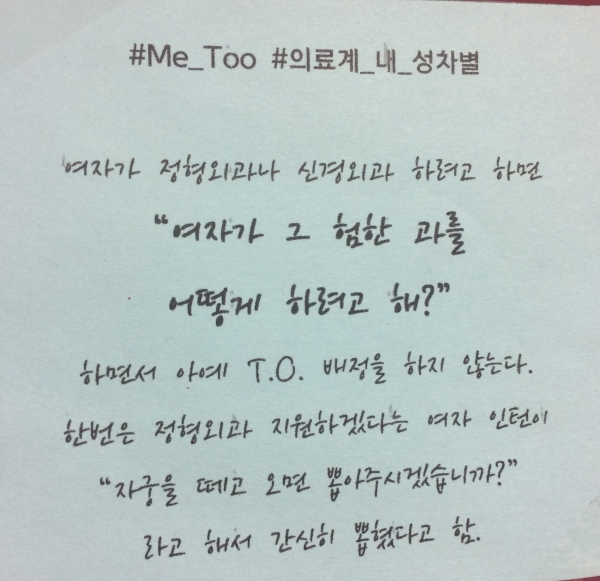 #Me_Too #의료계_내_성차별
여자가 정형외과나 신경외과 하려고 하면
“여자가 그 험한 과를
어떻게 하려고 해?”
하면서 아예 T.O. 배정을 하지 않는다.
한번은 정형외과 지원하겠다는 여자 인턴이
“자궁을 떼고 오면 뽑아주시겠습니까?”
라고 해서 간신히 뽑혔다고 함.